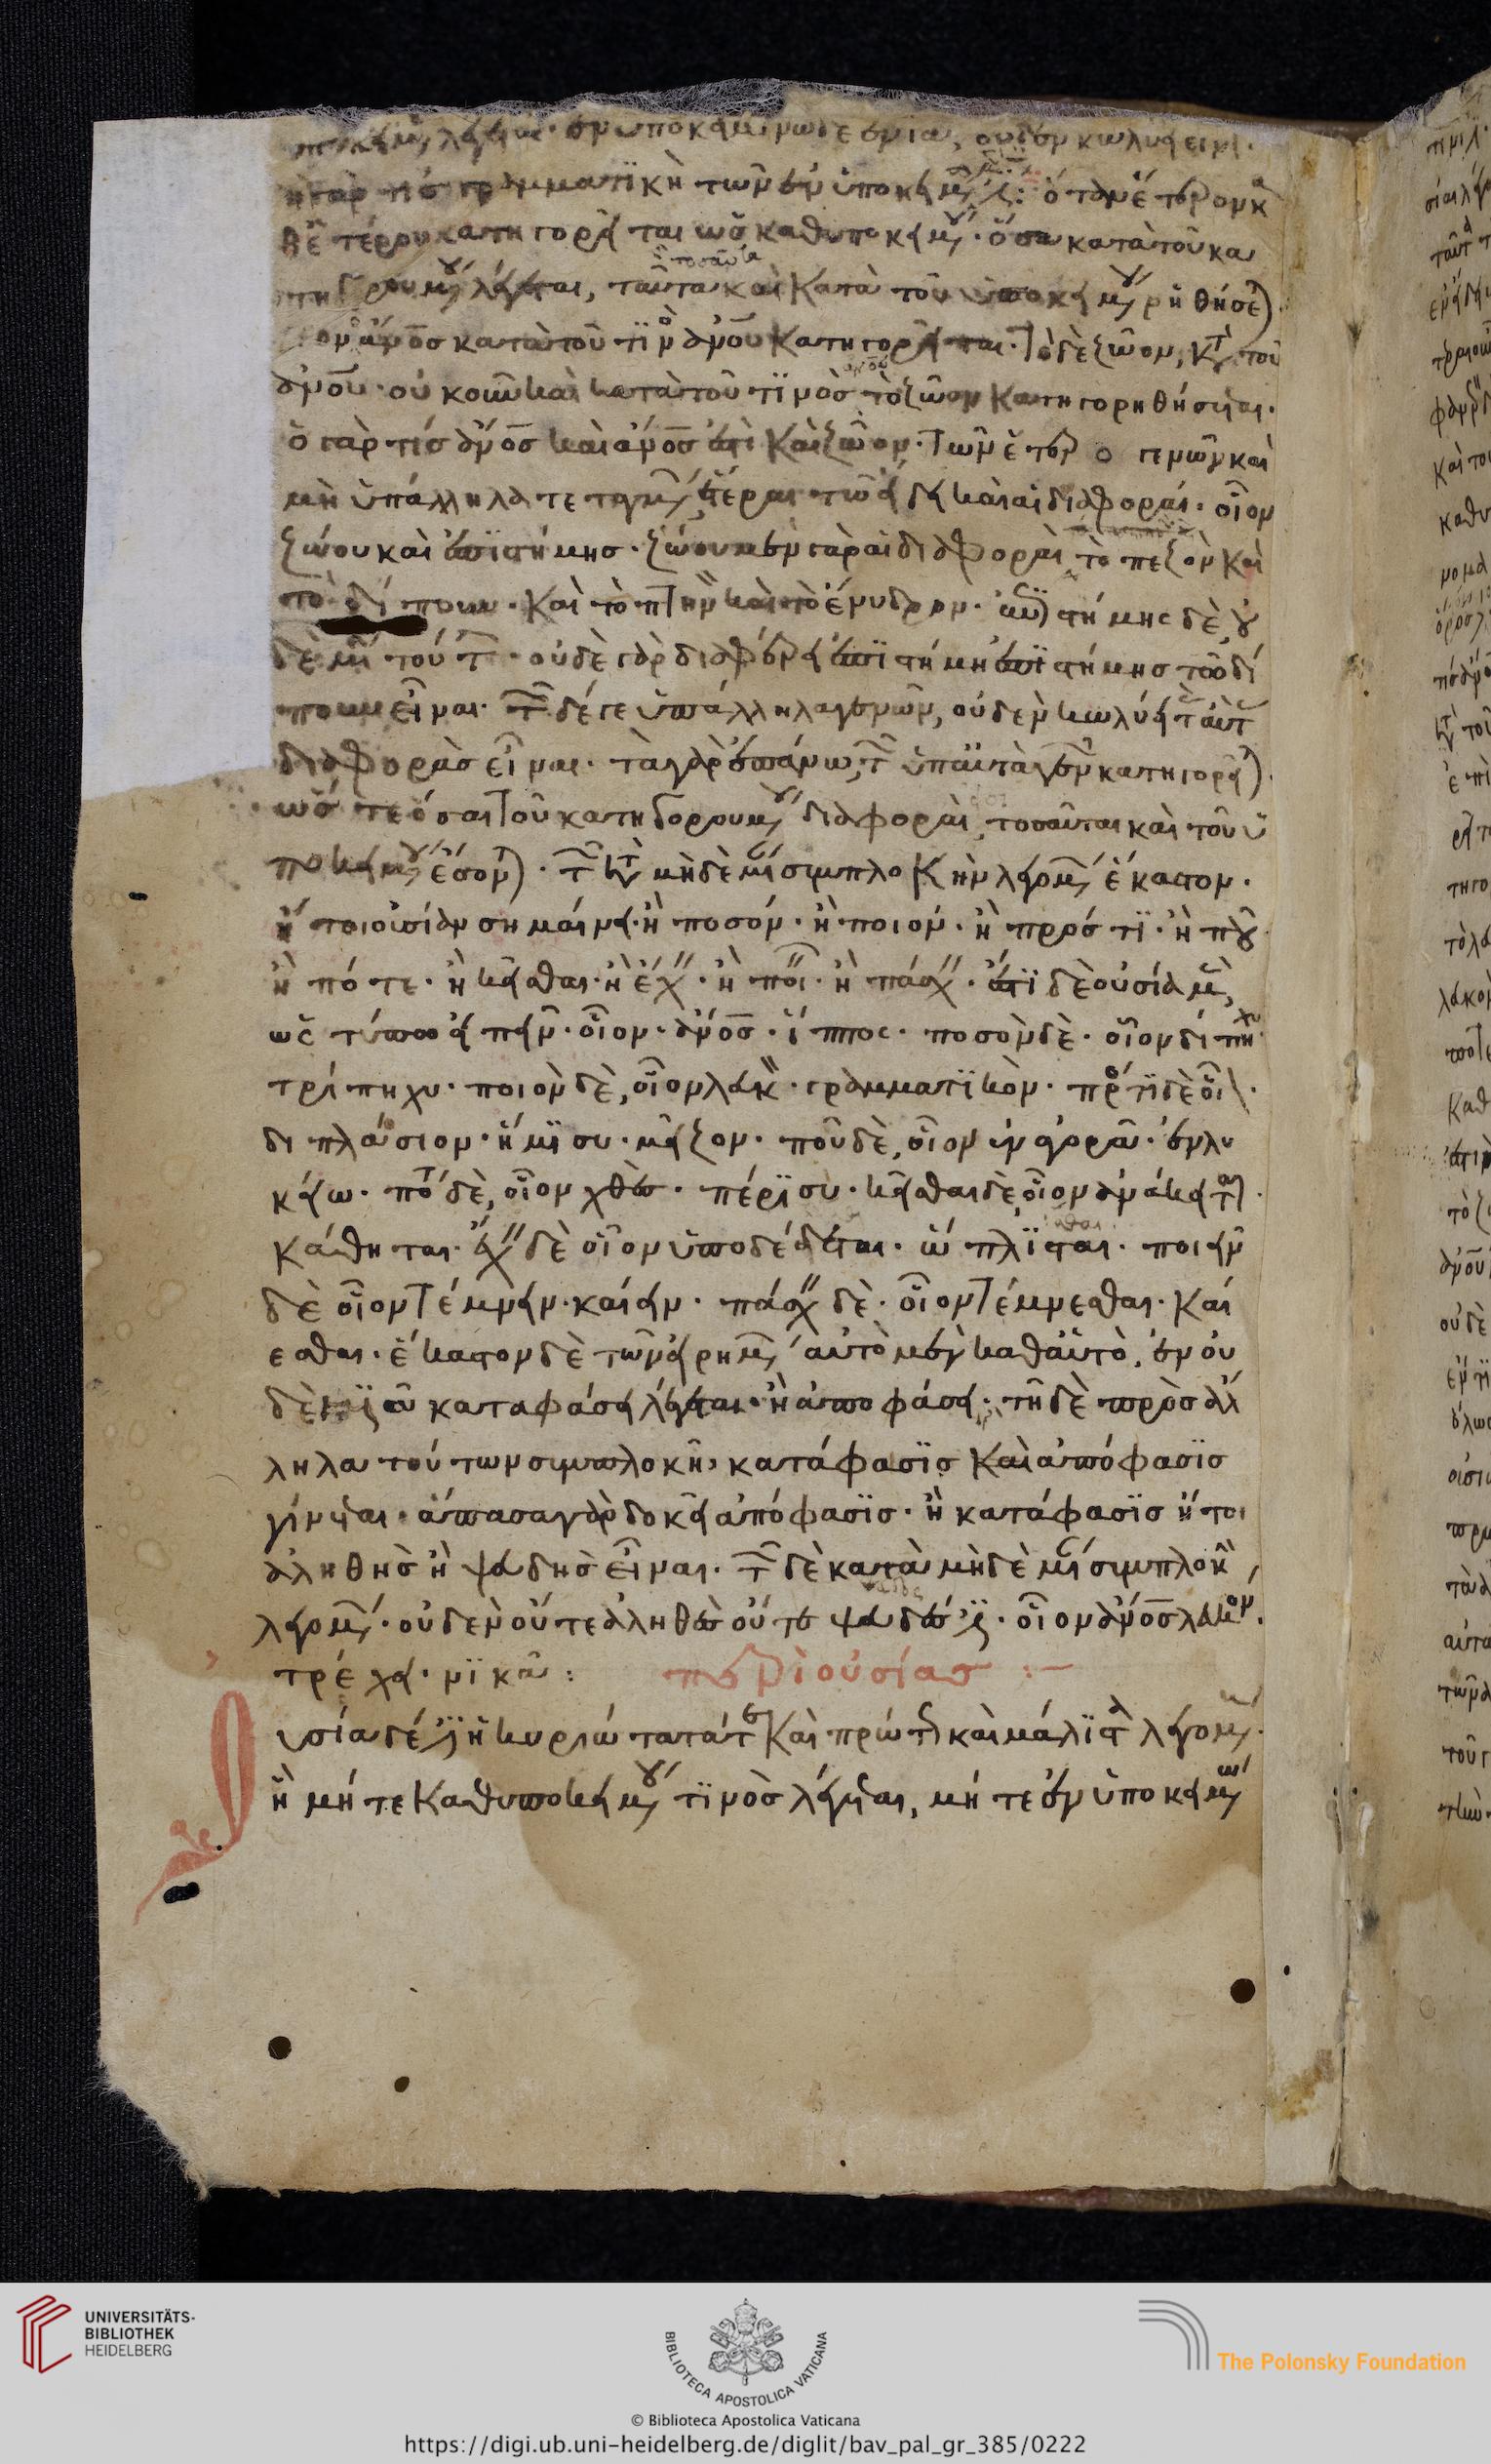 λέγεται· ἐν ὑποκειμένω δὲ ἔνια, οὐδὲν κωλύει εἶναι·
ἡ γάρ τις γραμματϊκὴ τῶν ἐν ὑποκειμένω ἐστίν: ὅταν ἕτερον κα
θ' ἑτέρου κατηγορῆται ὡς καθ' ὑποκειμένου· ὅσα κατὰ τοῦ κα
τηγορουμένου λέγεται, ταῦτα καὶ κατὰ τοῦ ὑποκειμένου ῥηθήσεται·
οἷον ἄνος κατὰ τοῦ τϊνὸς ἀνου κατηγορεῖται· τὸ δὲ ζῶον, κατὰ τοῦ
ἀνου· οὐκοῦν καὶ κατὰ τοῦ τϊνὸς τὸ ζῶον κατηγορηθήσεται·
ὁ γάρ τις ἄνος καὶ ἄνος ἐστὶ καὶ ζῶον· τῶν ἑτέρο γενῶν καὶ
μὴ ὑπάλληλα τεταγμένων ἕτεραι τῶ εἴδει καὶ αἱ διαφοραί· οἷον
ζώου καὶ ἐπϊστήμης· ζώου μὲν γὰρ αἱ διαφοραὶ, τὸ πεζὸν καὶ
τὸ δίπουν· καὶ τὸ πτηνὸν καὶ τὸ ἔνυδρον· ἐπιστήμης δὲ οὐ
δὲ μία τούτων· οὐδὲ γὰρ διαφέρει ἐπϊστήμη ἐπϊστήμης τῶ δί
πουν εἶναι· τῶν δέ γε ὑπάλληλα γενῶν, οὐδὲν κωλύει τὰς αὐτὰς
διαφορὰς εἶναι· τὰ γὰρ ἐπάνω, τῶν ὑπ' αὐτὰ γενῶν κατηγορεῖται·
ὥστε ὅσαι τοῦ κατηγορουμένου διαφοραὶ, τοσαῦται καὶ τοῦ ὑ
ποκειμένου ἔσονται· τῶν κατὰ μηδεμίαν συμπλοκὴν λεγομένων ἕκαστον·
ἤτοι οὐσίαν σημαίνει· ἢ ποσόν· ἢ ποιόν· ἢ πρός τϊ· ἢ ποῦ
ἢ πότε· ἢ κεῖσθαι· ἢ ἔχειν· ἢ ποιεῖν· ἢ πάσχειν· ἔστϊ δὲ οὐσία μὲν,
ὡς τύπω εἰπεῖν· οἷον· ἄνος· ἵππος· ποσὸν δὲ· οἷον δίπηχυ·
τρίπηχυ· ποιὸν δὲ, οἷον λευκὸν· γραμματϊκόν· πρός τϊ δὲ οἷον·
διπλάσιον· ἥμϊσυ· μεῖζον· ποῦ δὲ, οἷον ἐν ἀγορᾶ· ἐν λυ
κείω· ποτὲ δὲ, οἷον χθὲς· πέρϋσυ· κεῖσθαι δὲ, οἷον ἀνάκειται·
κάθηται· ἔχειν δὲ οἷον ὑποδέδεται· ὥπλϊσται· ποιεῖν
δὲ οἷον τέμνειν· καίειν· πάσχειν δὲ· οἷον τέμνεσθαι· καί
εσθαι· ἕκαστον δὲ τῶν εἰρημένων αὐτὸ μὲν καθ' αὑτὸ, ἐν οὐ
δεμϊᾶ καταφάσει λέγεται· ἢ ἀποφάσει· τῆ δὲ πρὸς ἄλ
ληλα τούτων συμπλοκῆ, κατάφασϊς καὶ ἀπόφασϊς
γίνεται· ἅπασα γὰρ δοκεῖ ἀπόφασϊς· ἢ κατάφασϊς ἤτοι
ἀληθὴς ἢ ψευδὴς εἶναι· τῶν δὲ κατὰ μηδεμίαν συμπλοκὴν,
λεγομένων· οὐδὲν οὔτε ἀληθὲς οὔτε ψεῦδός ἐστϊν· οἷον ἄνος λευκόν.
τρέχει· νϊκᾶ: περὶ οὐσίας :—
Οὐσία δέ ἐστϊν ἡ κυριώτατά τε καὶ πρώτως καὶ μάλϊστα λεγομένη·
ἣ μήτε καθ' ὑποκειμένου τϊνὸς λέγεται, μήτε ἐν ὑποκειμένω
UNIVERSITÄTS-
BIBLIOTHEK
HEIDELBERG
BIBLIOTECA APOSTOLICA VATICANA
The Polonsky Foundation
© Biblioteca Apostolica Vaticana
https://digi.ub.uni-heidelberg.de/diglit/bav_pal_gr_385/0222